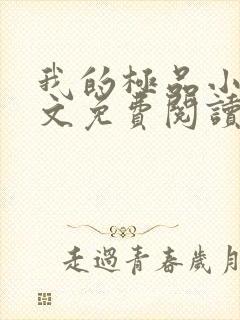 我的極品小
文免費閱讀
走過青春歲月